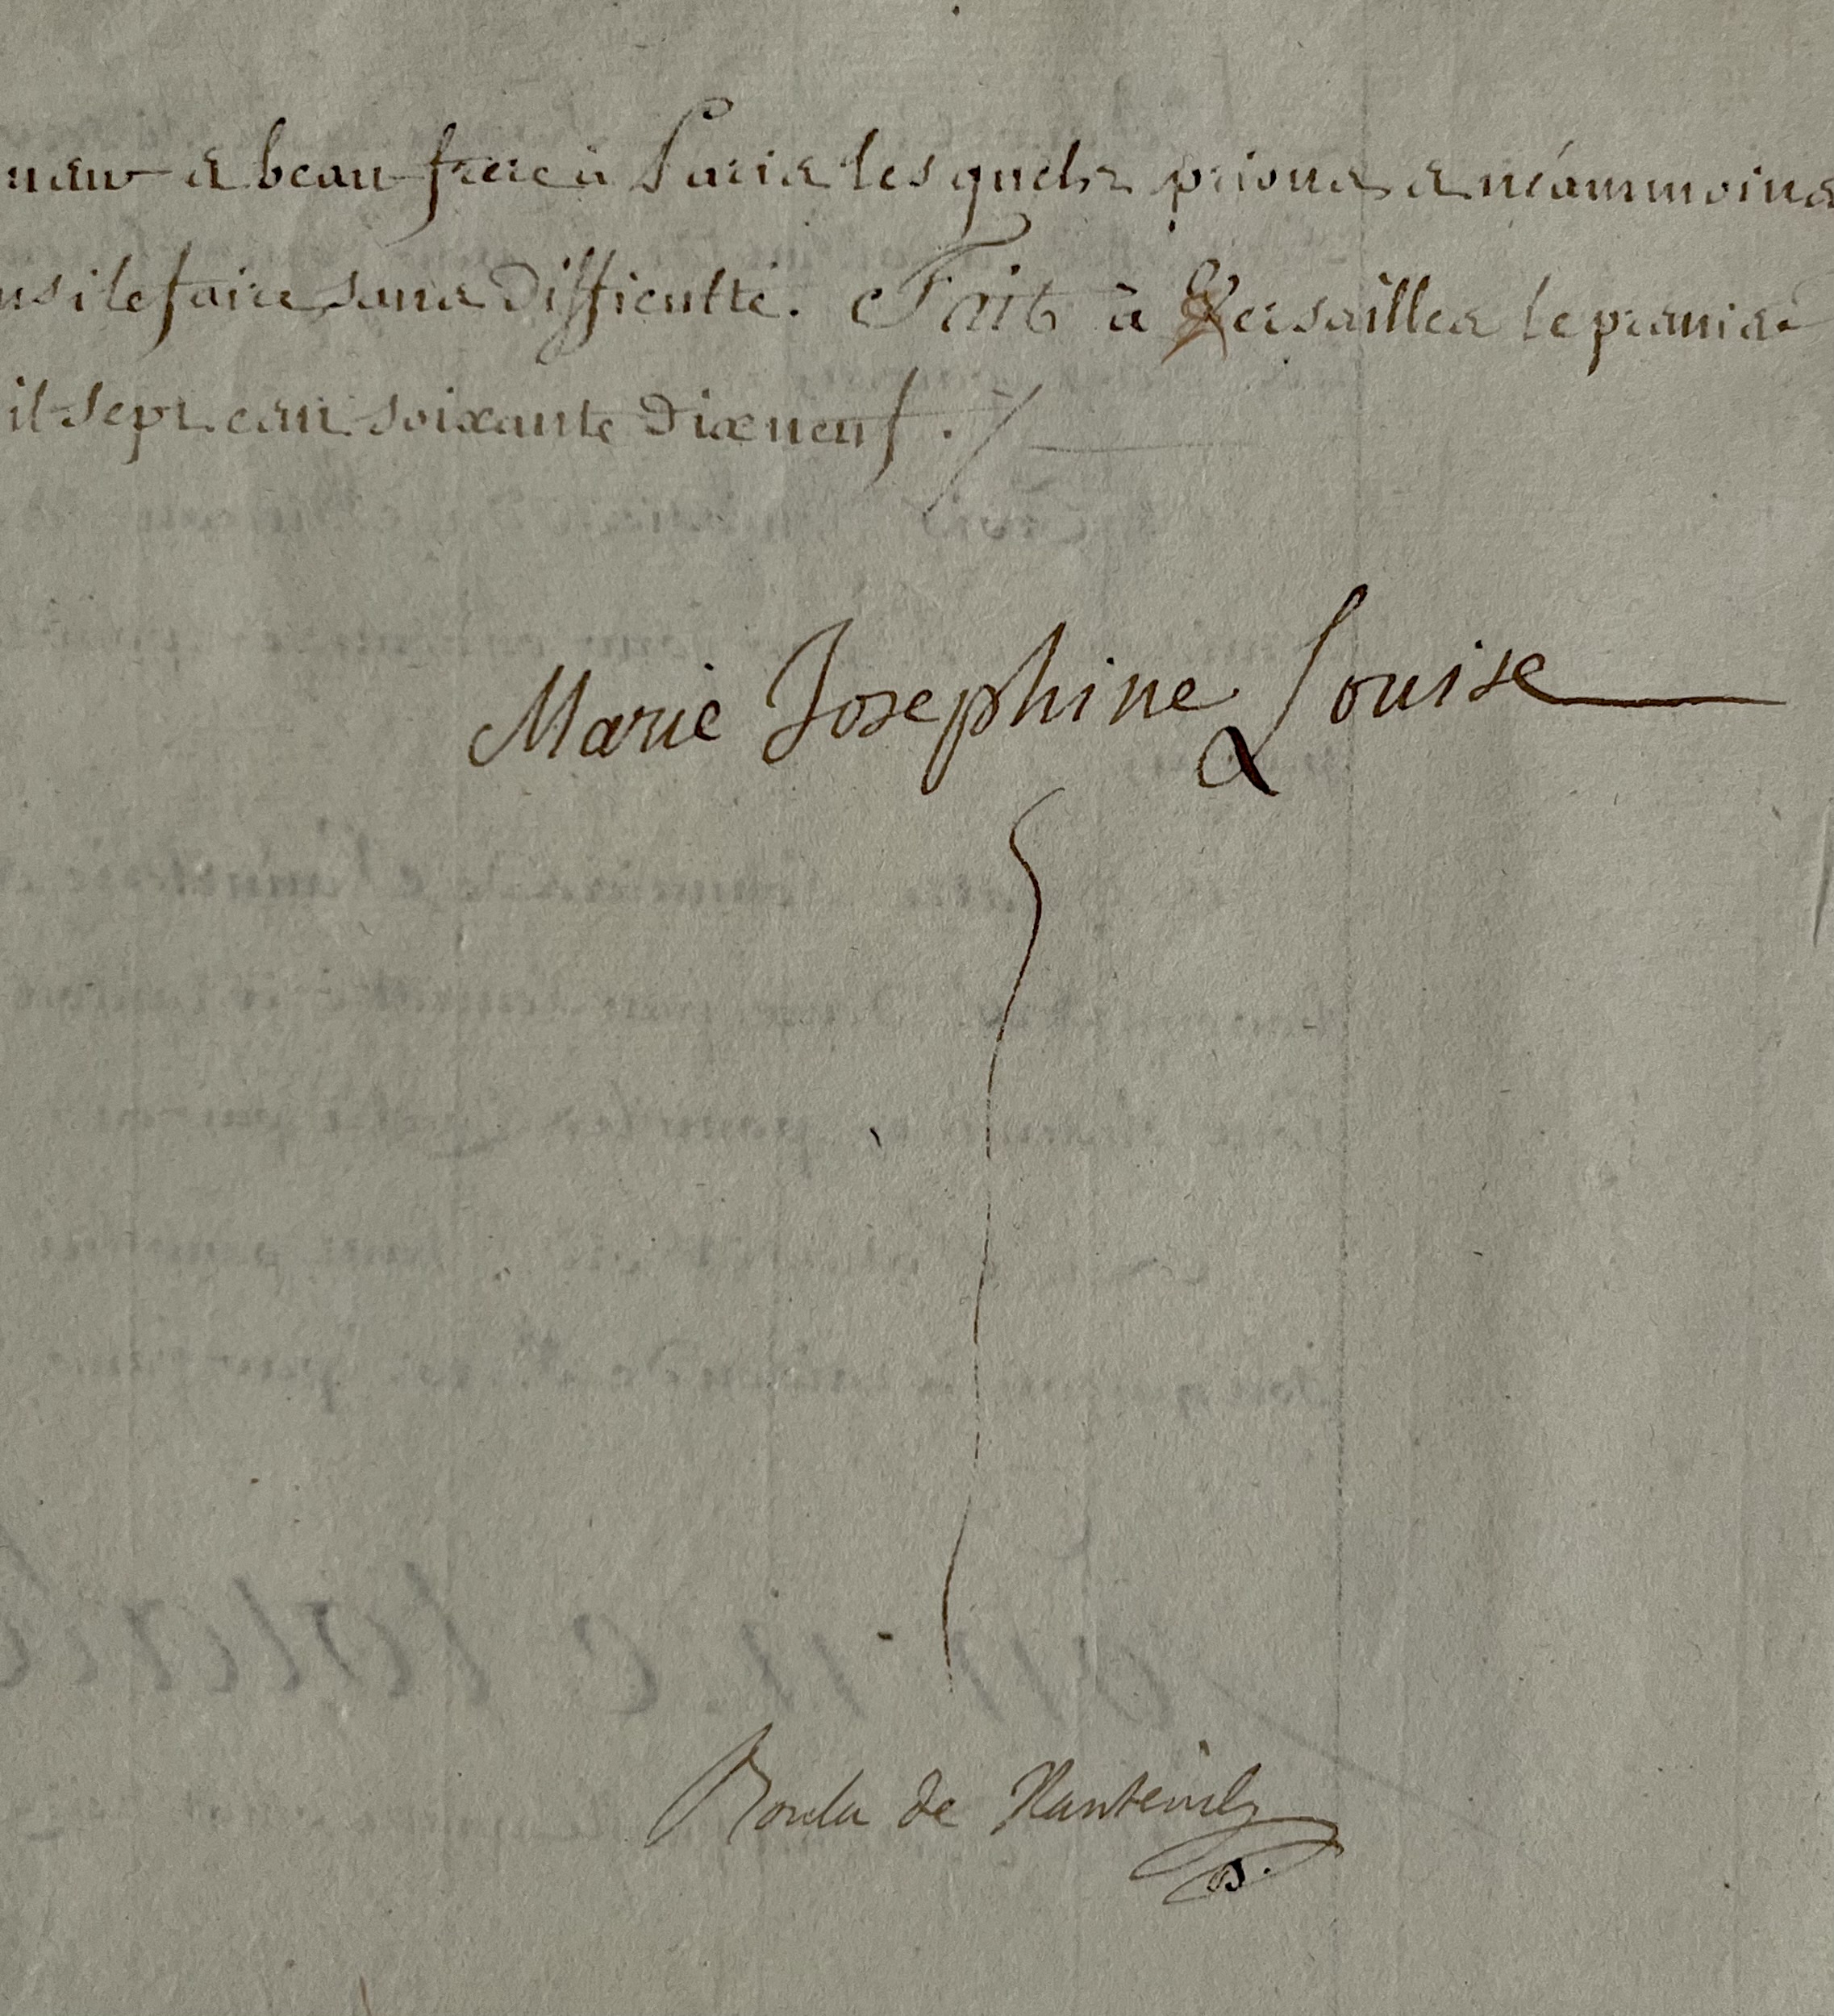 & beau frere à Paris les quels prions & néammoins
le faire sans difficulté. Fait à Versailles le premier
il sept cent soixante dix neuf ./.
Marie Josephine Louise
de Nanteuil